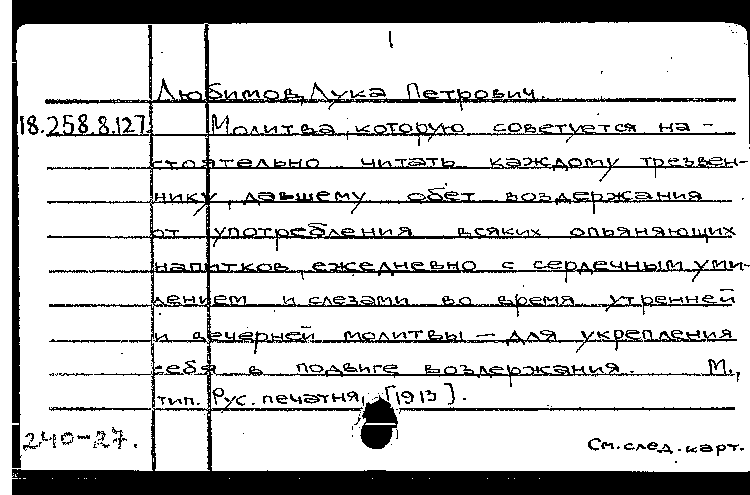 1
Любимов, Лука Петрович.
18.258.8.127. Молитва, которую советуется на-
стоятельно читать каждому трезвен-
нику, давшему обет воздержания
от употребления всяких опьяняющих
напитков, ежедневно с сердечным уми-
лением и слезами во время утренней
и вечерней молитвы – для укрепления
себя в подвиге воздержания. М.,
тип. Рус. печатня, [1913].
240-27.
См. след. карт.